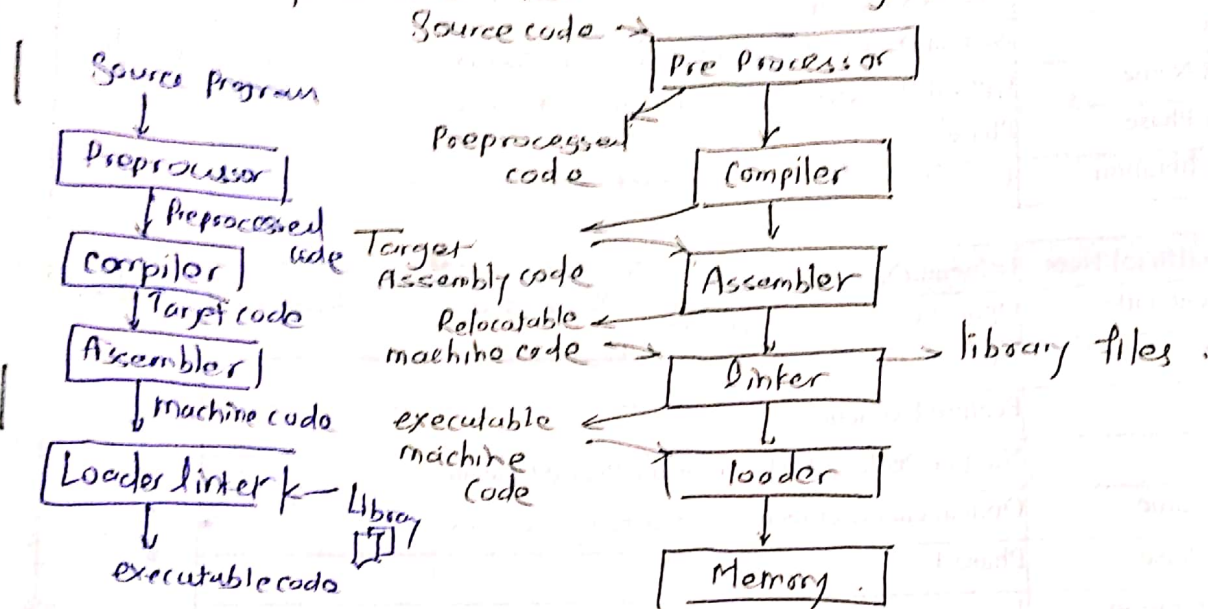 Source Program
Preprocessor
Preprocessed
code
Compiler
Target code
Assembler
machine code
Loader linker
Library
executable code
Source code
Pre Processor
Preprocessed
code
Compiler
Target
Assembly code
Assembler
Relocatable
machine code
linker
library files.
executable
machine
code
loader
Memory.